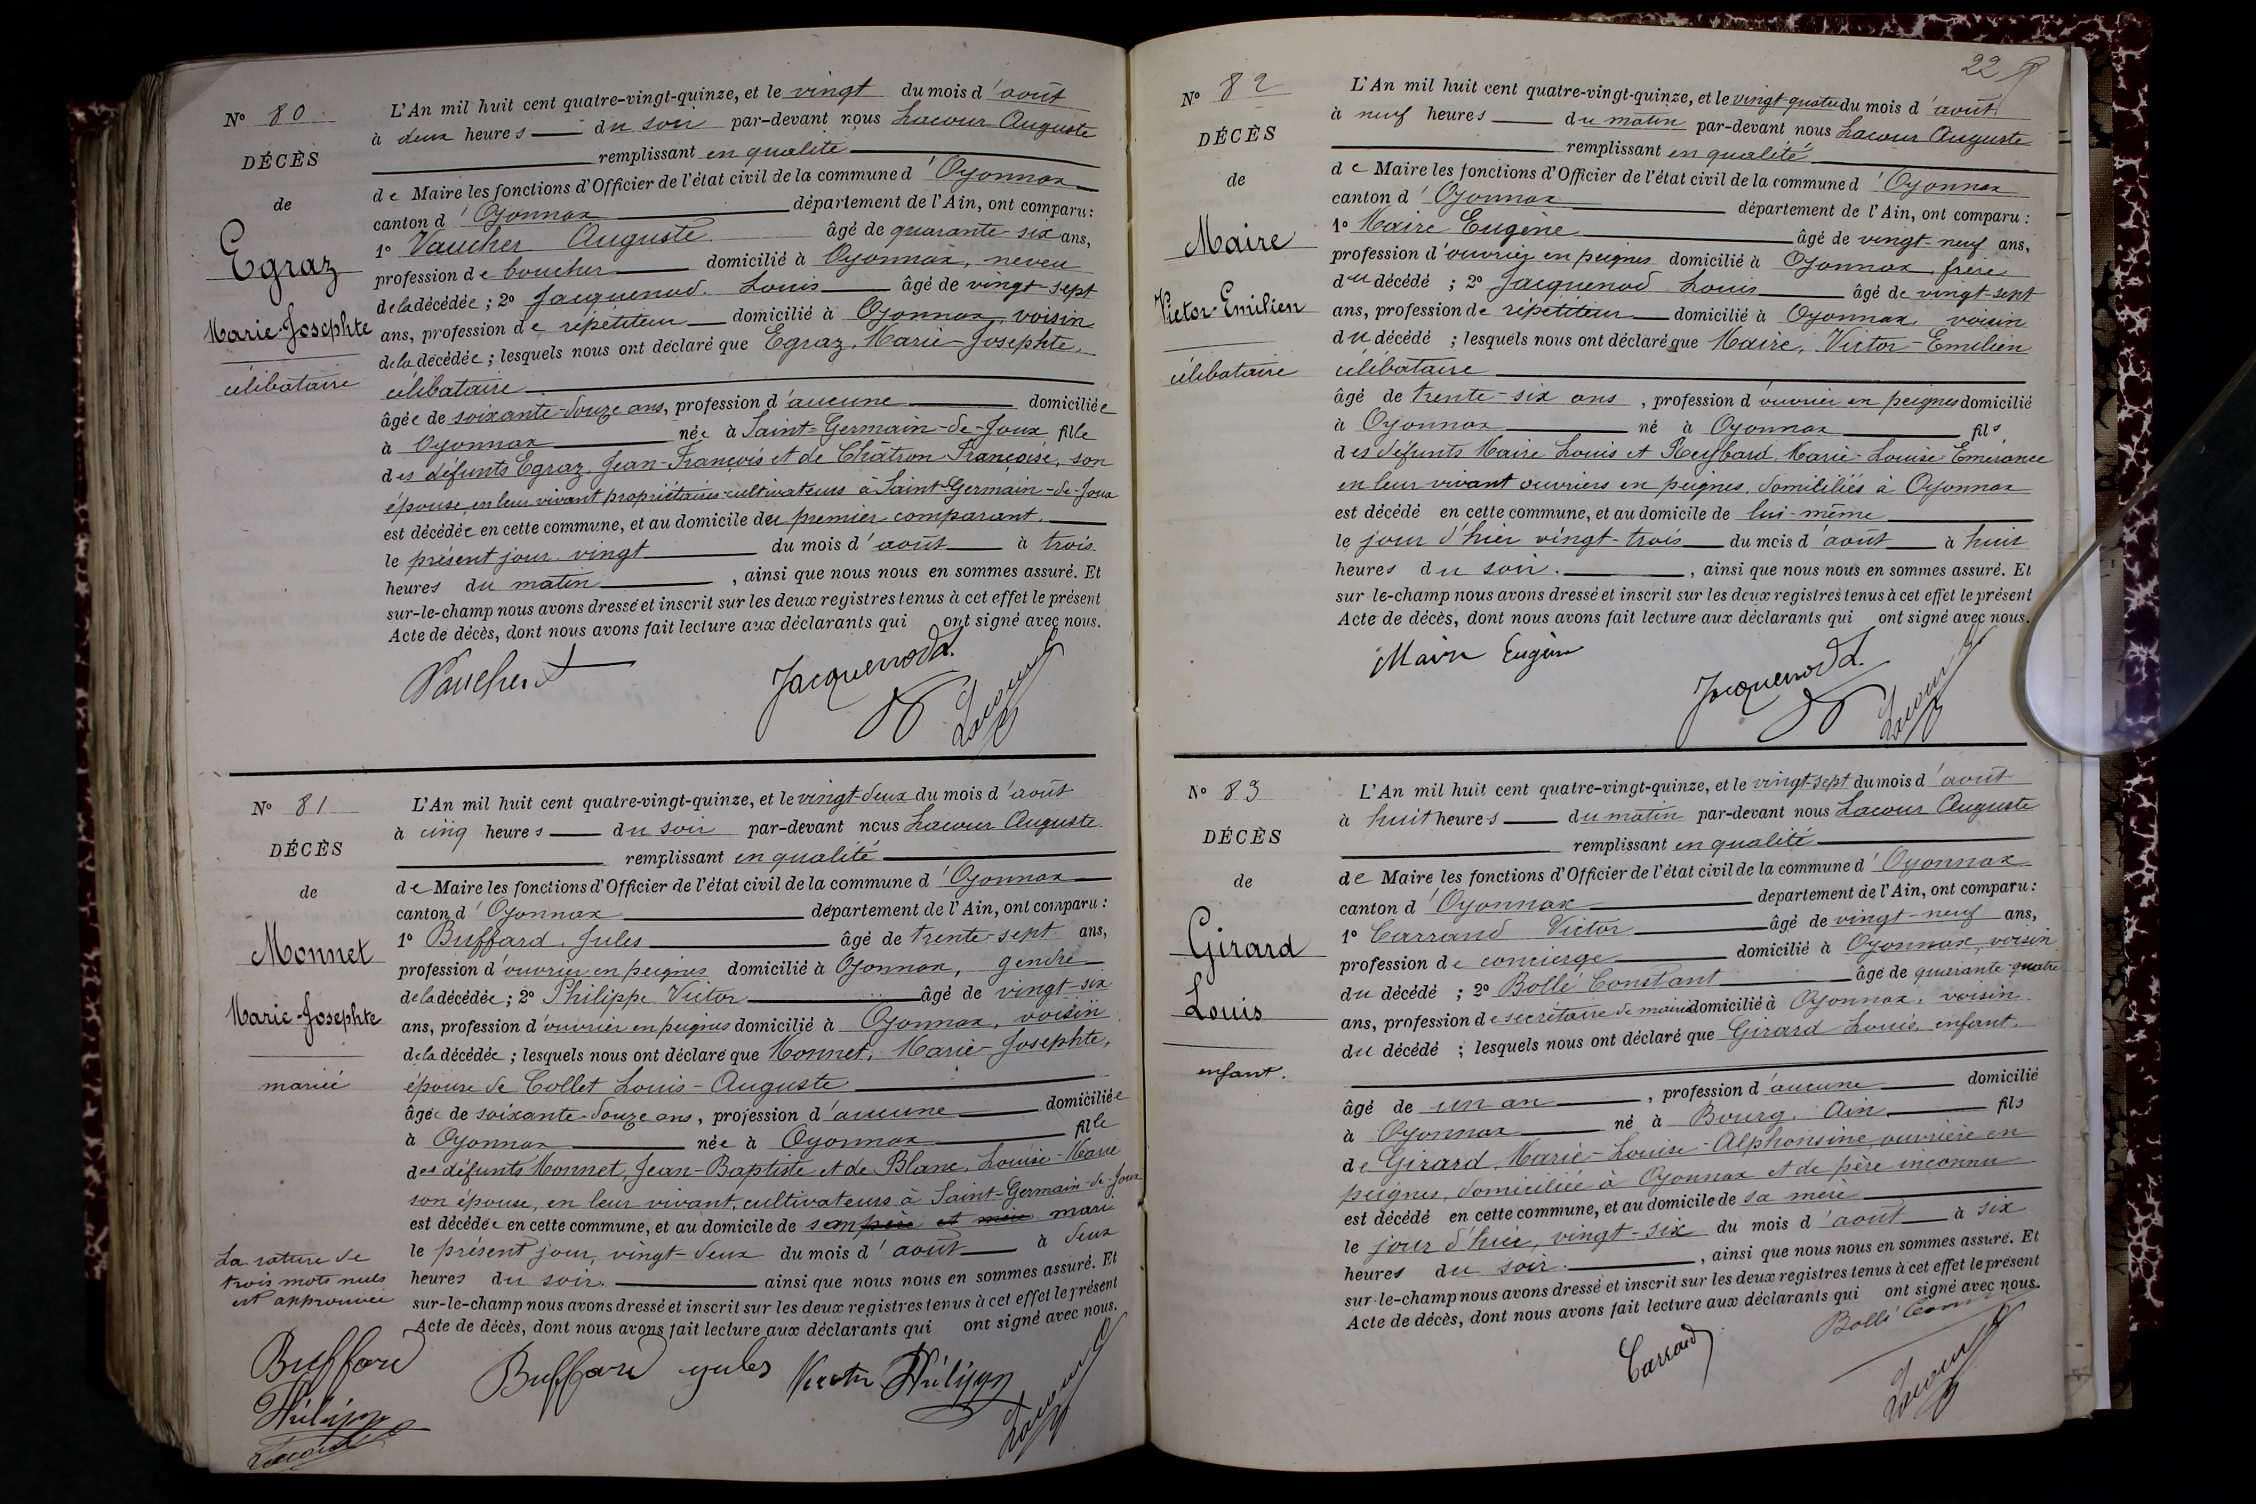 N° 80
DÉCÈS
de
Egraz
Marie-Josephte
célibataire
L'An mil huit cent quatre-vingt-quinze, et le vingt du mois d'août
à deux heures du soir par-devant nous Lacour Auguste
remplissant en qualité
de Maire les fonctions d'Officier de l'état civil de la commune d'Oyonnax
canton d'Oyonnax département de l'Ain, ont comparu :
1° Vaucher Auguste âgé de quarante-six ans,
profession de boucher domicilié à Oyonnax, neveu
de la décédée ; 2° Jacquenod Louis âgé de vingt-sept
ans, profession de répétiteur domicilié à Oyonnax, voisin
de la décédée ; lesquels nous ont déclaré que Egraz, Marie-Josephte,
célibataire
âgée de soixante-douze ans, profession d'aucune domiciliée
à Oyonnax née à Saint-Germain-de-Joux fille
des défunts Egraz, Jean-François et de Châtron Françoise, son
épouse, en leur vivant propriétaires-cultivateurs à Saint-Germain-de-Joux
est décédée en cette commune, et au domicile du premier comparant.
le présent jour vingt du mois d'août à trois
heures du matin, ainsi que nous nous en sommes assuré. Et
sur-le-champ nous avons dressé et inscrit sur les deux registres tenus à cet effet le présent
Acte de décès, dont nous avons fait lecture aux déclarants qui ont signé avec nous.
Vaucher A
Jacquenod L.
Lacour
N° 81
DÉCÈS
de
Monnet
Marie-Josephte
mariée
La rature de
trois mots nuls
est approuvée
Buffard
Philippe
Lacour
L'An mil huit cent quatre-vingt-quinze, et le vingt-deux du mois d'août
à cinq heures du soir par-devant nous Lacour Auguste
remplissant en qualité
de Maire les fonctions d'Officier de l'état civil de la commune d'Oyonnax
canton d'Oyonnax département de l'Ain, ont comparu :
1° Buffard, Jules âgé de trente-sept ans,
profession d'ouvrier en peignes domicilié à Oyonnax, gendre
de la décédée ; 2° Philippe Victor âgé de vingt-six
ans, profession d'ouvrier en peignes domicilié à Oyonnax, voisin
de la décédée ; lesquels nous ont déclaré que Monnet, Marie-Josephte,
épouse de Collet Louis-Auguste
âgée de soixante-douze ans, profession d'aucune domiciliée
à Oyonnax née à Oyonnax fille
des défunts Monnet, Jean-Baptiste et de Blanc, Louise-Marie
son épouse, en leur vivant, cultivateurs à Saint-Germain-de-Joux
est décédée en cette commune, et au domicile de son père et mère mari
le présent jour, vingt-deux du mois d'août à deux
heures du soir. ainsi que nous nous en sommes assuré. Et
sur-le-champ nous avons dressé et inscrit sur les deux registres tenus à cet effet le présent
Acte de décès, dont nous avons fait lecture aux déclarants qui ont signé avec nous.
Buffard jules
Victor Philippe
Lacour
22
N° 82
DÉCÈS
de
Maire
Victor-Emilien
célibataire
L'An mil huit cent quatre-vingt-quinze, et le vingt-quatre du mois d'août
à neuf heures du matin par-devant nous Lacour Auguste
remplissant en qualité
de Maire les fonctions d'Officier de l'état civil de la commune d'Oyonnax
canton d'Oyonnax département de l'Ain, ont comparu :
1° Maire Eugène âgé de vingt-neuf ans,
profession d'ouvrier en peignes domicilié à Oyonnax, frère
du décédé ; 2° Jacquenod Louis âgé de vingt-sept
ans, profession de répétiteur domicilié à Oyonnax voisin
du décédé ; lesquels nous ont déclaré que Maire, Victor-Emilien
célibataire
âgé de trente-six ans, profession d'ouvrier en peignes domicilié
à Oyonnax né à Oyonnax fils
des défunts Maire Louis et Reybard Marie-Louise-Emérance
en leur vivant ouvriers en peignes, domiciliés à Oyonnax
est décédé en cette commune, et au domicile de lui-même
le jour d'hier vingt-trois du mois d'août à huit
heures du soir. , ainsi que nous nous en sommes assuré. Et
sur-le-champ nous avons dressé et inscrit sur les deux registres tenus à cet effet le présent
Acte de décès, dont nous avons fait lecture aux déclarants qui ont signé avec nous.
Maire Eugène
Jacquenod L.
Lacour
N° 83
DÉCÈS
de
Girard
Louis
enfant.
L'An mil huit cent quatre-vingt-quinze, et le vingt-sept du mois d'août
à huit heures du matin par-devant nous Lacour Auguste
remplissant en qualité
de Maire les fonctions d'Officier de l'état civil de la commune d'Oyonnax
canton d'Oyonnax departement de l'Ain, ont comparu :
1° Carrand Victor âgé de vingt-neuf ans,
profession de concierge domicilié à Oyonnax, voisin
du décédé ; 2° Bollé Constant âgé de quarante-quatre
ans, profession de secrétaire de mairie domicilié à Oyonnax, voisin
du décédé ; lesquels nous ont déclaré que Girard Louis, enfant.
âgé de un an, profession d'aucune domicilié
à Oyonnax né à Bourg, Ain, fils
de Girard, Marie-Louise-Alphonsine, ouvrière en
peignes, domiciliée à Oyonnax et de père inconnu
est décédé en cette commune, et au domicile de sa mère
le jour d'hier, vingt-six du mois d'août à six
heures du soir. , ainsi que nous nous en sommes assuré. Et
sur-le-champ nous avons dressé et inscrit sur les deux registres tenus à cet effet le présent
Acte de décès, dont nous avons fait lecture aux déclarants qui ont signé avec nous.
Carrand
Bollé Const
Lacour